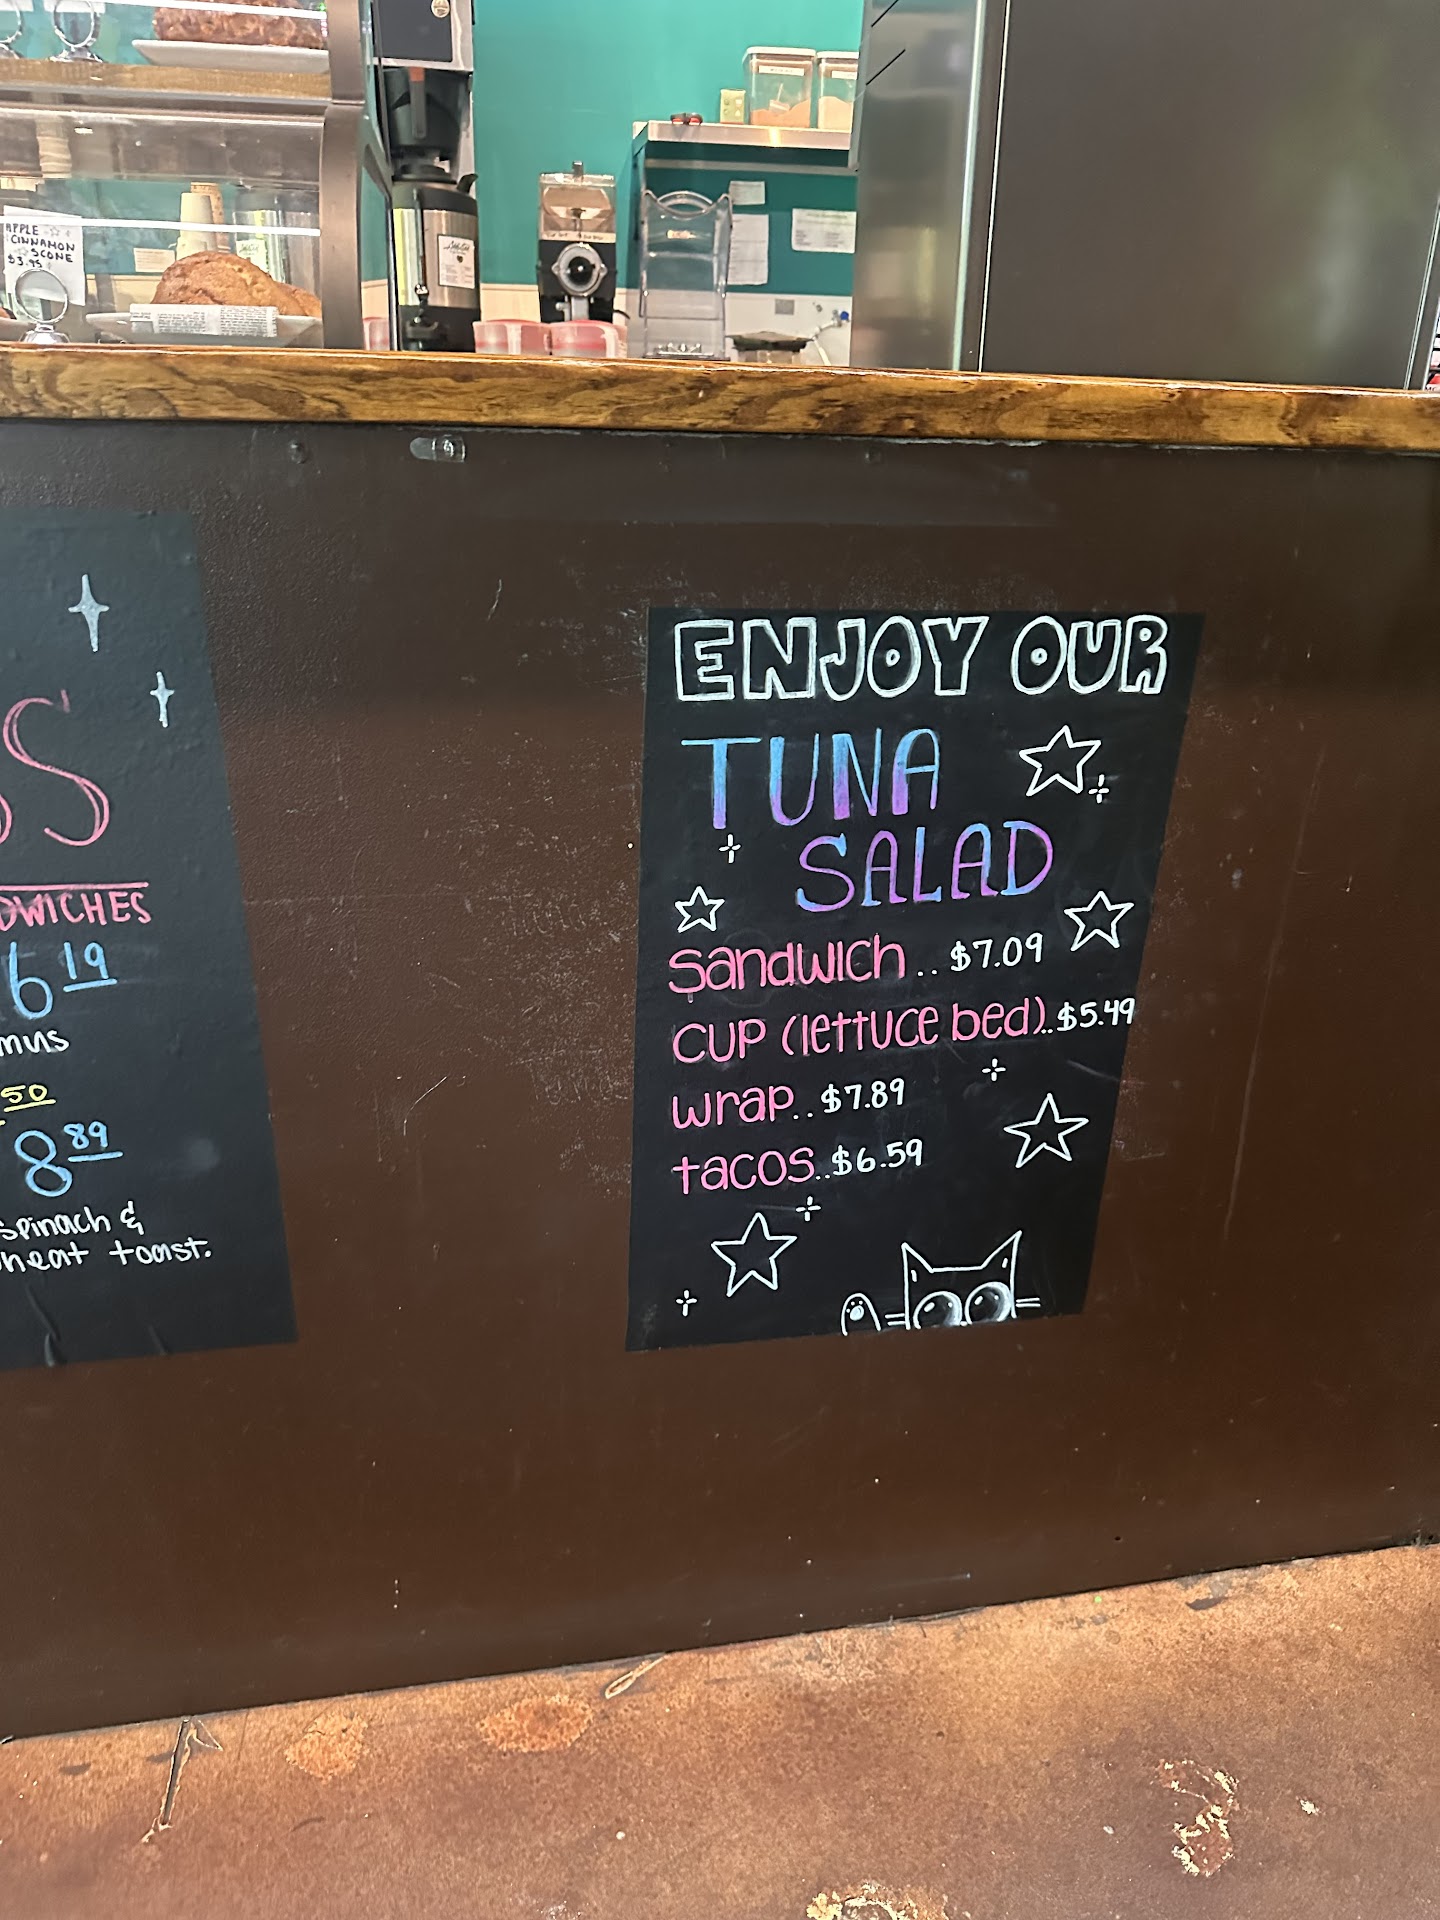 APPLE
CINNAMON
SCONE
$3.95
6 19
8 89
50
spinach &
toast.
ENJOY OUR
TUNA
SALAD
sandwich .. $7.09
CUP (lettuce bed)..$5.49
wrap..$7.89
tacos..$6.59